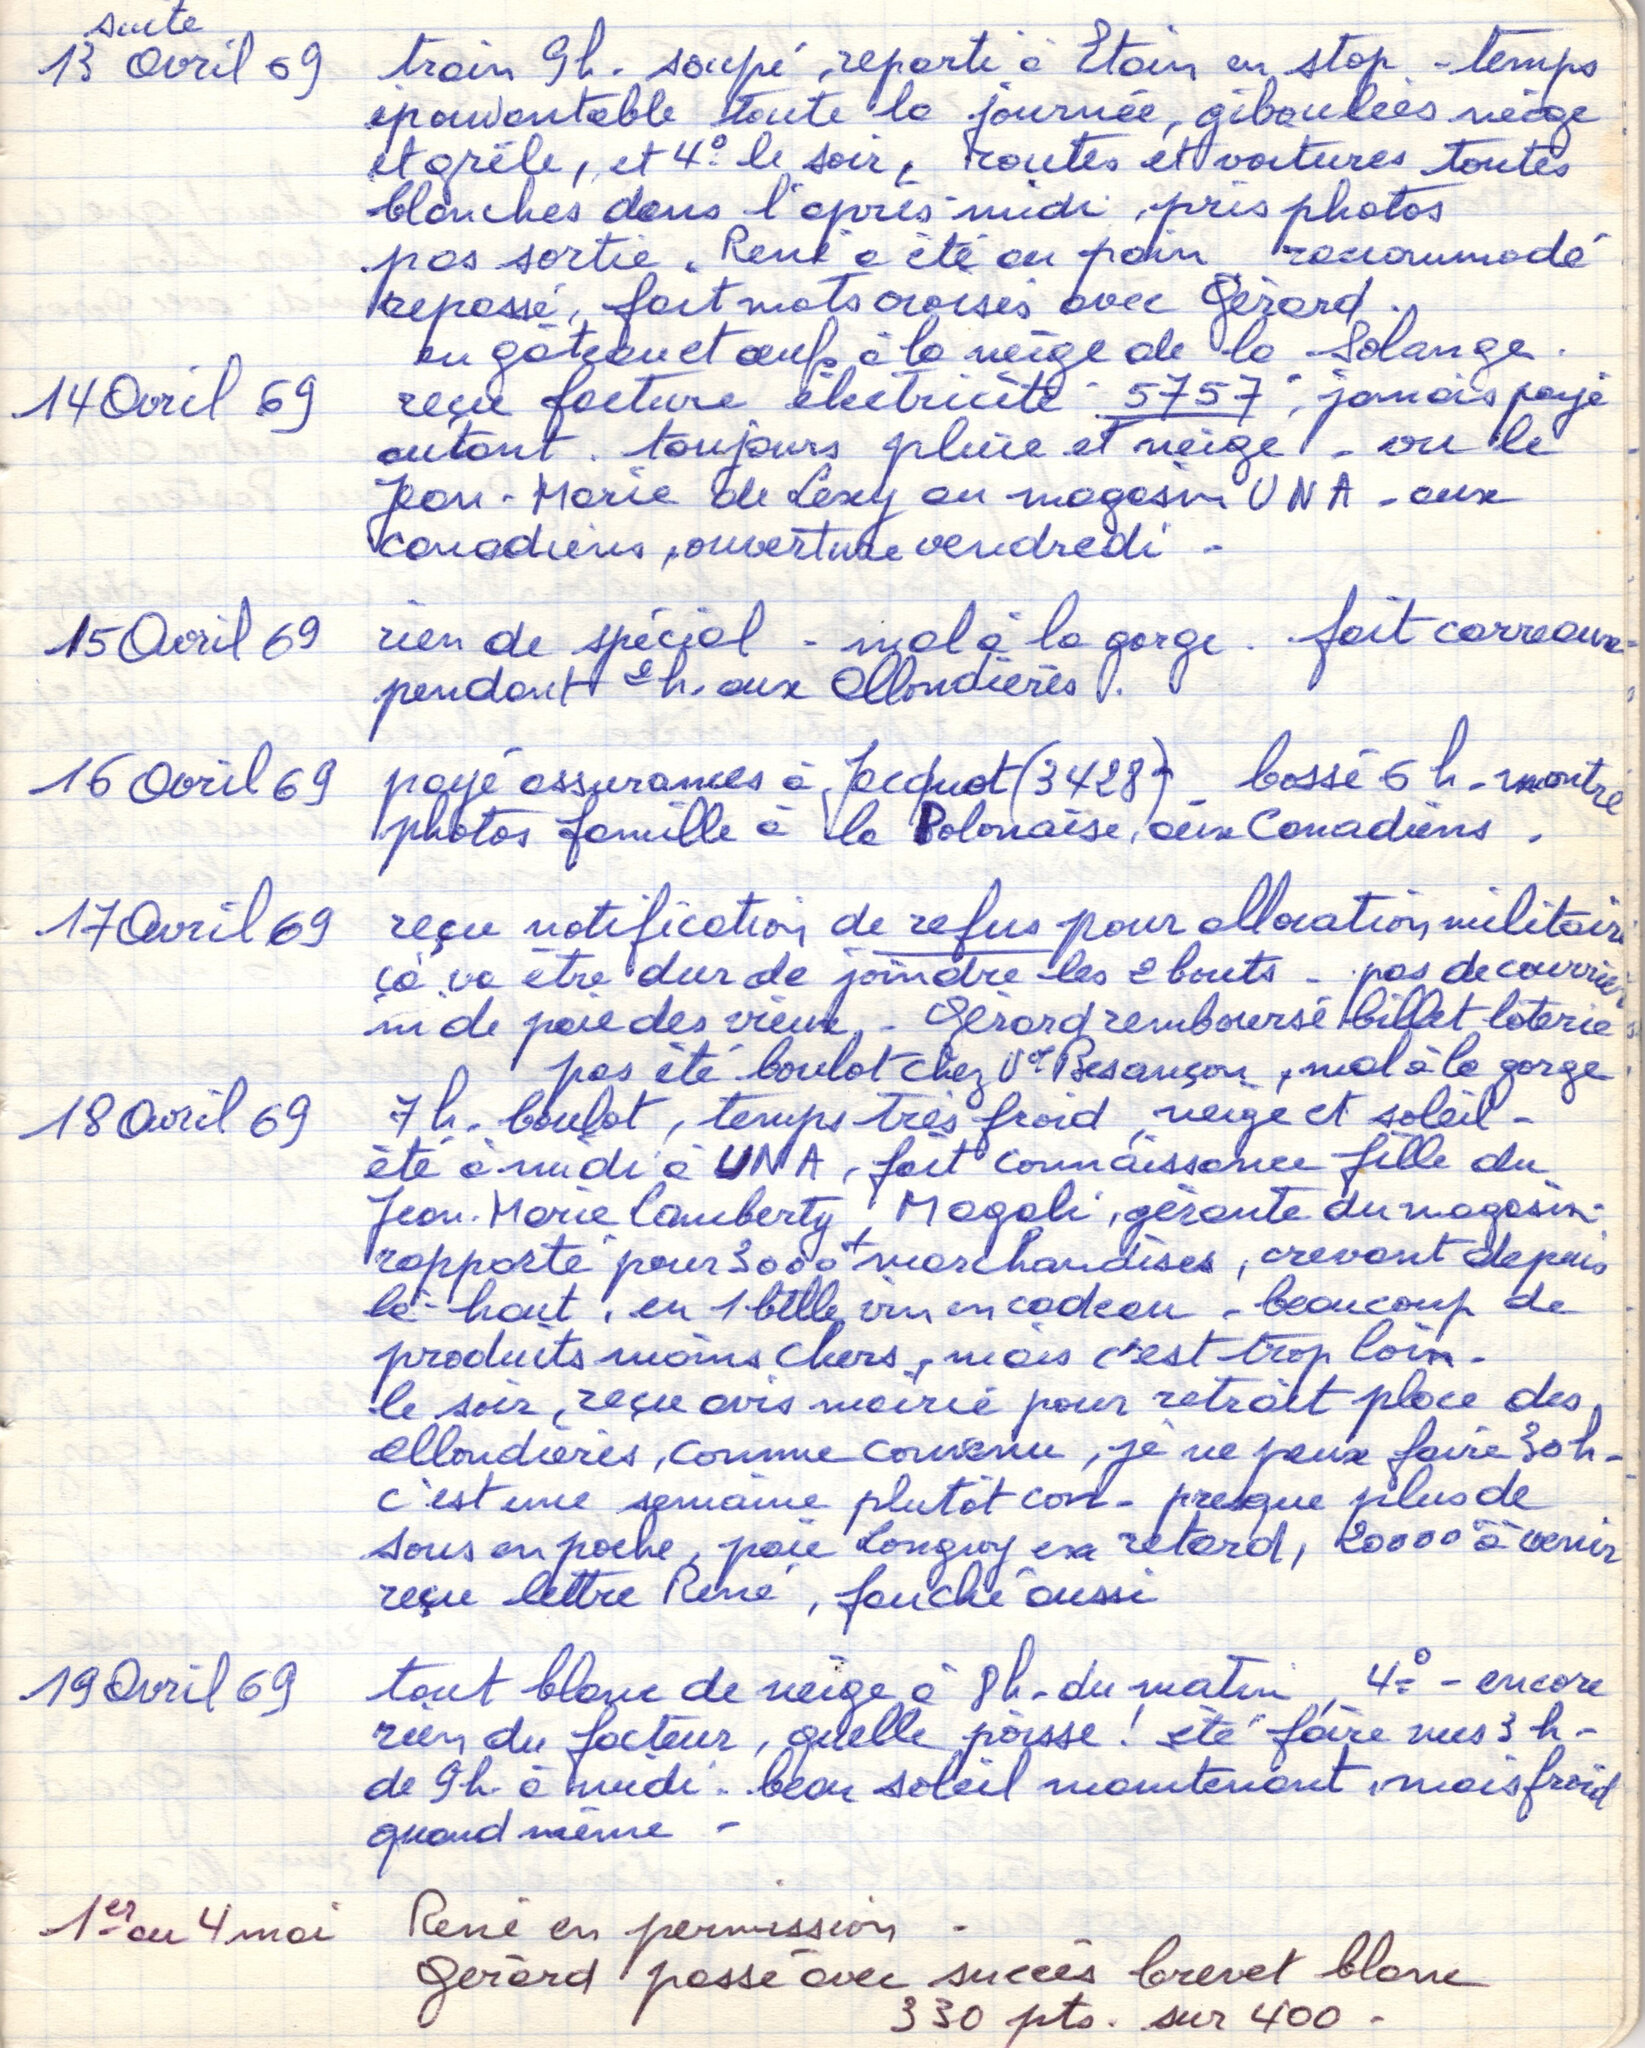 suite
13 Avril 69 train 9h. soupé, reparti à Etain en stop - temps
épouvantable toute la journée, giboulées neige
et grêle, et 4° le soir, routes et voitures toutes
blanches dans l'après-midi, pris photos
pas sortie. René a été au pain raccommodé
repassé, fait mots croisés avec Gérard.
eu gâteau et oeufs à la neige de la Solange.
14 Avril 69 reçu facture électricité 5757, jamais payé
autant. toujours pluie et neige - vu le
Jean-Marie de Lexy au magasin UNA - aux
canadiens, ouverture vendredi -
15 Avril 69 rien de spécial - mal à la gorge. fait carreaux
pendant 2h. aux Allondières.
16 Avril 69 payé assurances à Jacquot (3428) - bossé 6 h - montré
photos famille à la Polonaise, aux Canadiens.
17 Avril 69 reçu notification de refus pour allocation militaire
çà va être dur de joindre les 2 bouts - pas de courrier
ni de paie des vieux - Gérard remboursé billet loterie
pas été boulot chez Besançon, mal à la gorge
18 Avril 69 7h. boulot, temps très froid, neige et soleil -
été à midi à UNA, fait connaissance fille du
Jean-Marie Lamberty, Magali, gérante du magasin.
rapporté pour 3000 marchandises, crevant depuis
là-haut, eu 1 btlle vin en cadeau - beaucoup de
produits moins chers, mais c'est trop loin -
le soir, reçu avis mairie pour retrait place des
Allondières, comme convenu, je ne peux faire 30h -
c'est une semaine plutôt con - presque plus de
sous en poche, paie Longwy en retard, 20000 à venir
reçu lettre René, fauché aussi
19 Avril 69 tout blanc de neige à 8h. du matin, 4° - encore
rien du facteur, quelle poisse! été faire mes 3 h -
de 9h à midi. beau soleil maintenant, mais froid
quand même -
1er au 4 mai René en permission -
Gérard passé avec succès brevet blanc
330 pts. sur 400 -